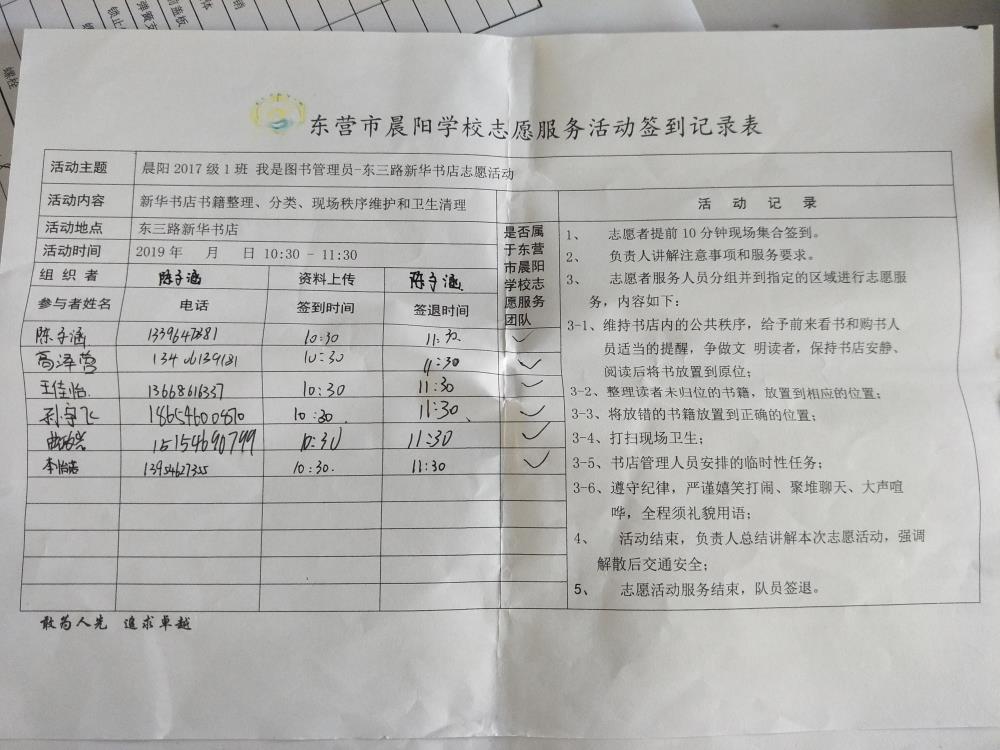 螺栓
锁止
弹簧支
前盖板
体
销
东营市晨阳学校志愿服务活动签到记录表
活动主题 晨阳 2017 级 1 班 我是图书管理员-东三路新华书店志愿活动
活动内容 新华书店书籍整理、分类、现场秩序维护和卫生清理
活动地点 东三路新华书店
活动时间 2019 年 月 日 10:30 - 11:30
组 织 者 陈子涵 资料上传 陈子涵
参与者姓名 电话 签到时间 签退时间
是否属
于东营
市晨阳
学校志
愿服务
团队
陈子涵 10:30 11:30
高泽营 13406139181 10:30 11:30
王佳怡 13668616337 10:30 11:30
18654600870 10:30 11:30
15154690799 10:30 11:30
13954627355 10:30 11:30
活 动 记 录
1、 志愿者提前 10 分钟现场集合签到。
2、 负责人讲解注意事项和服务要求。
3、 志愿者服务人员分组并到指定的区域进行志愿服
务，内容如下：
3-1、维持书店内的公共秩序，给予前来看书和购书人
员适当的提醒，争做文 明读者，保持书店安静、
阅读后将书放置到原位；
3-2、整理读者未归位的书籍，放置到相应的位置；
3-3、将放错的书籍放置到正确的位置；
3-4、打扫现场卫生；
3-5、书店管理人员安排的临时性任务；
3-6、遵守纪律，严谨嬉笑打闹、聚堆聊天、大声喧
哗，全程须礼貌用语；
4、 活动结束，负责人总结讲解本次志愿活动，强调
解散后交通安全；
5、 志愿活动服务结束，队员签退。
敢为人先 追求卓越